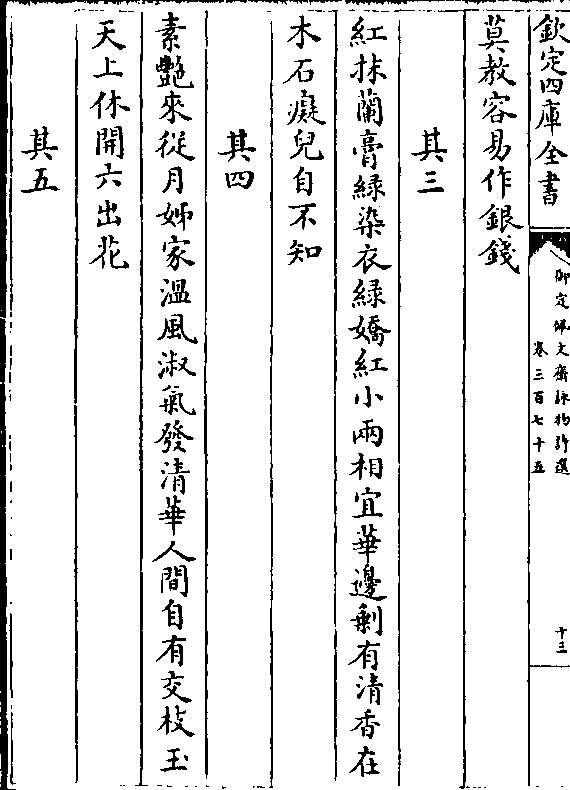 欽定四庫全書
御定佩文齋詠物詩選
卷三百七十五
十三
莫教容易作銀錢
其三
紅抹蘭膏緑染衣緑嬌紅小兩相宜華邊剩有清香在
木石癡兒自不知
其四
素艷來從月姊家溫風淑氣發清華人間自有交枝玉
天上休開六出花
其五